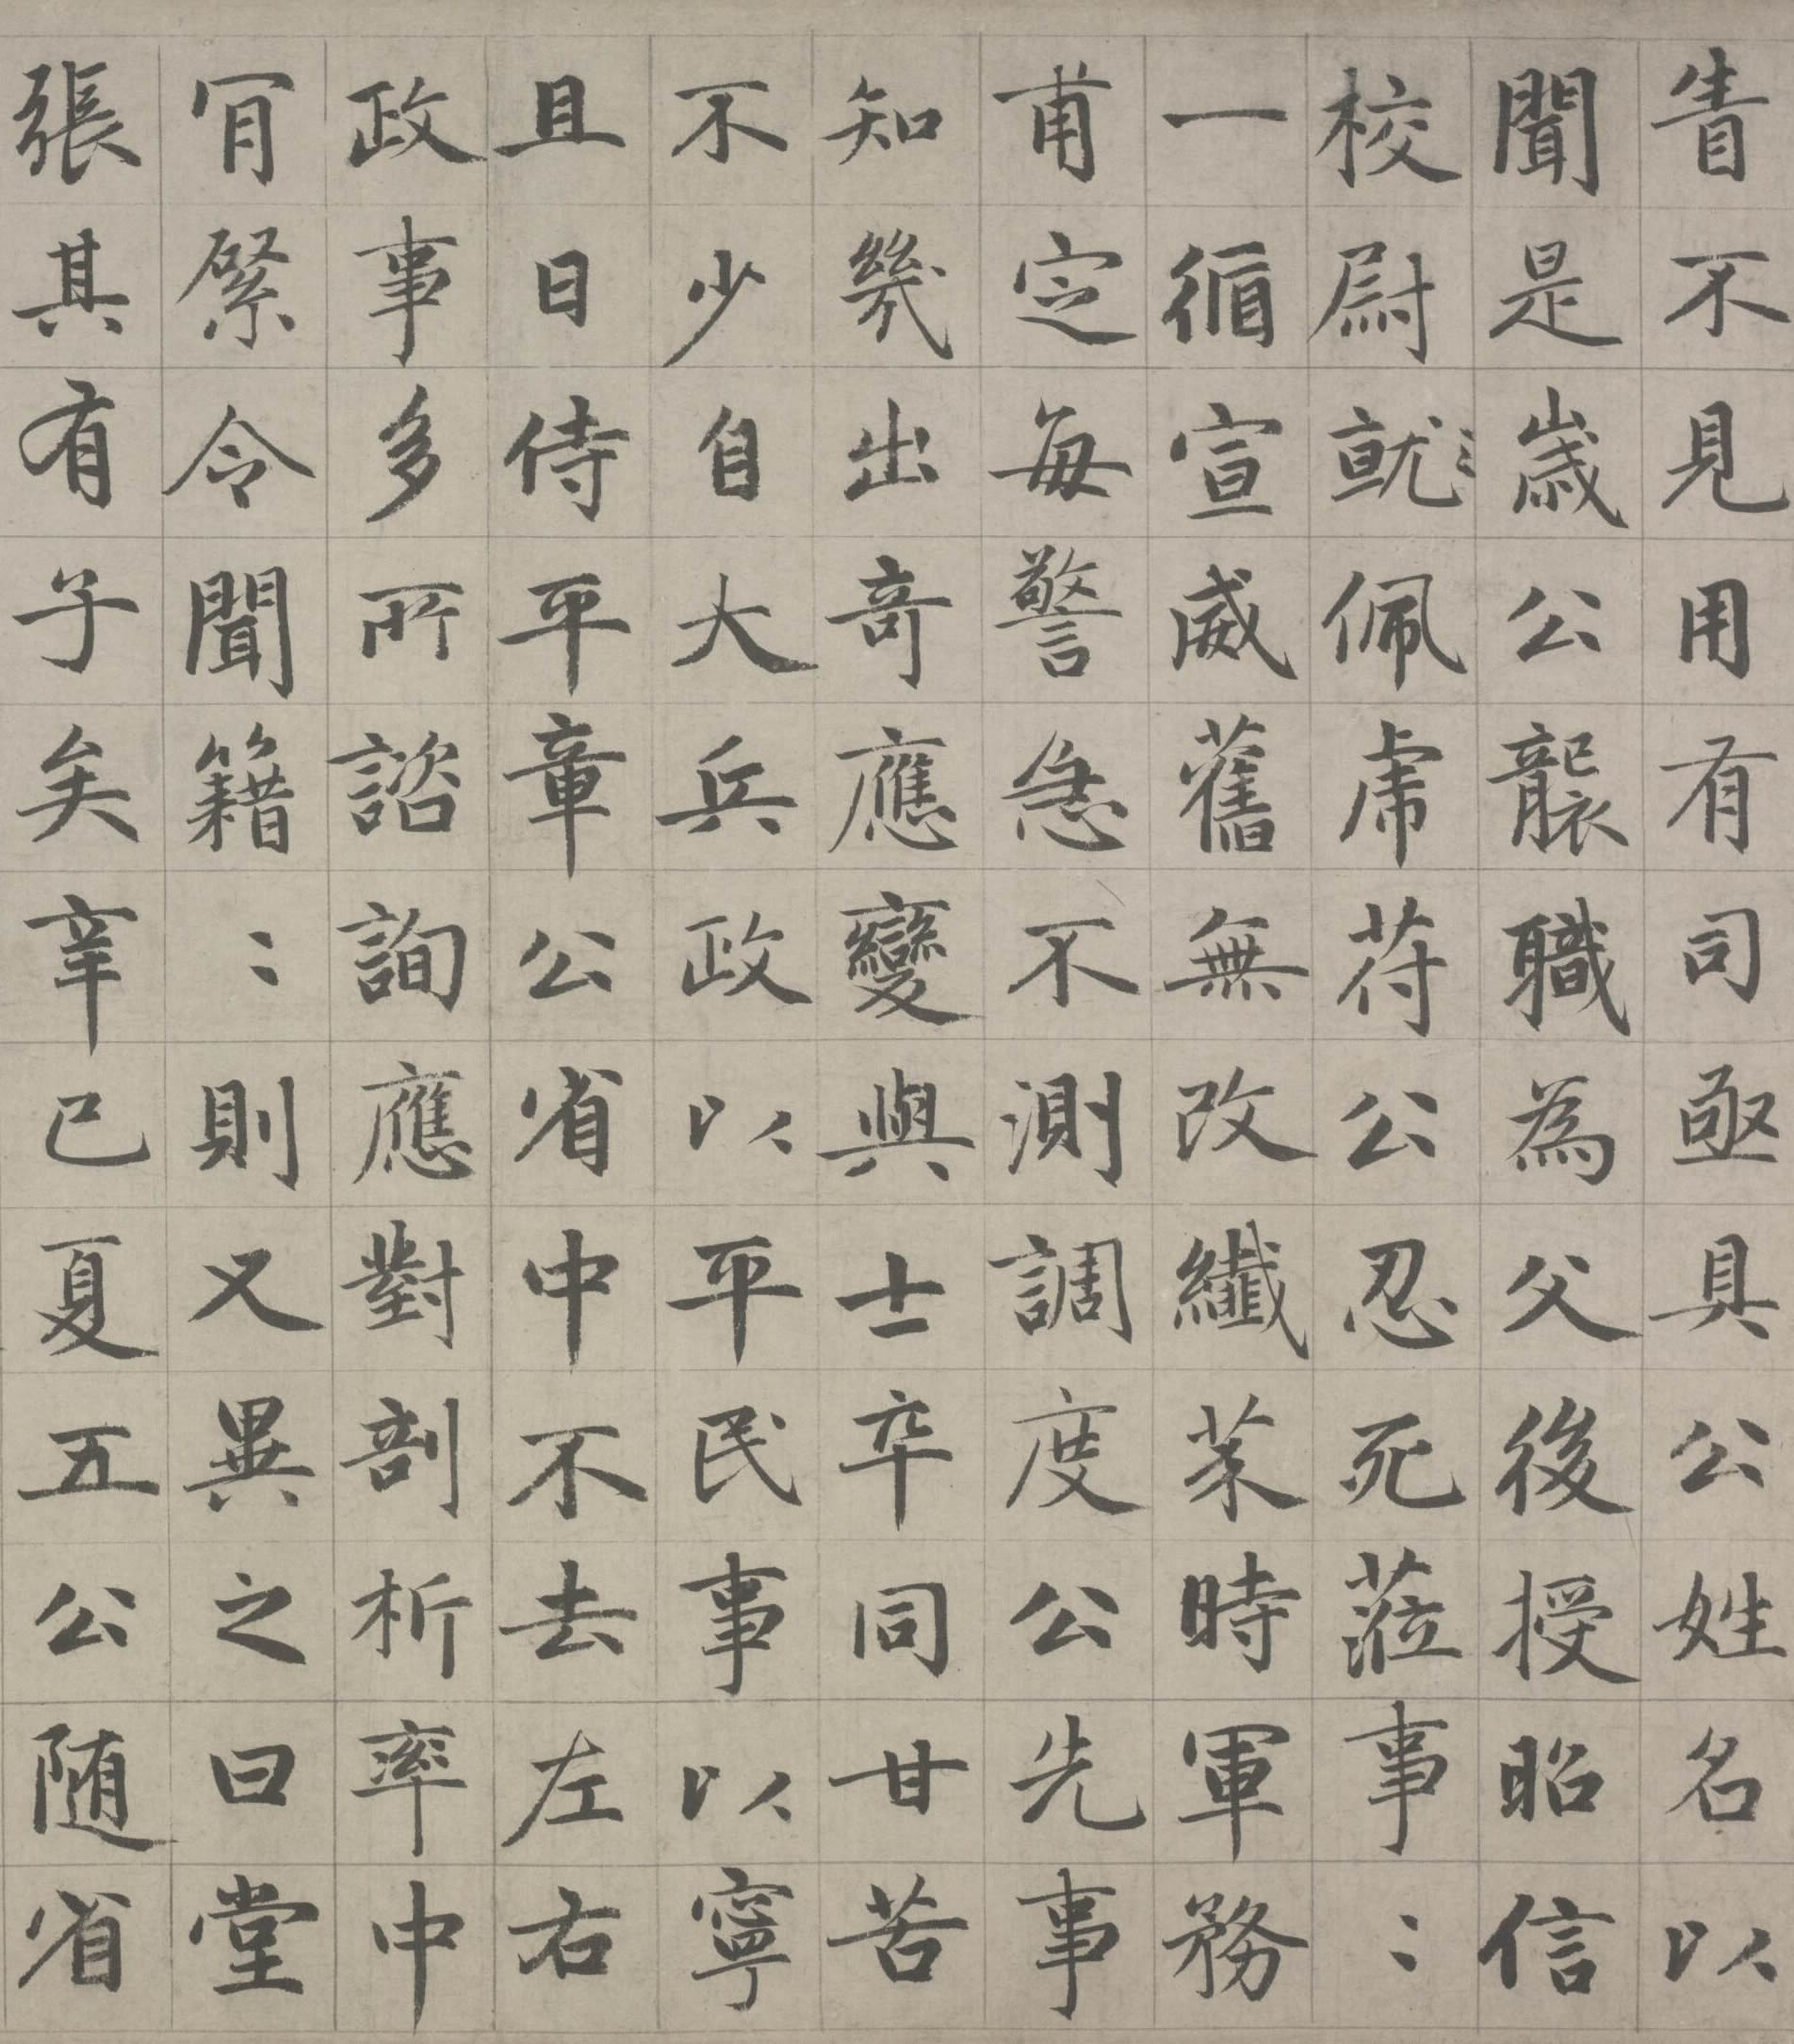 眚不見用有司亟具公姓名以
聞是歲公襲職為父後授昭信
校尉就佩虎符公忍死蒞事〻
一循宣威舊無改纖芥時軍務
甫定每警急不測調度公先事
知幾出奇應變與士卒同甘苦
不少自大兵政以平民事以寧
且日侍平章公省中不去左右
政事多所諮詢應對剖析率中
肎綮令聞籍〻則又異之曰堂
張其有子矣辛巳夏五公随省